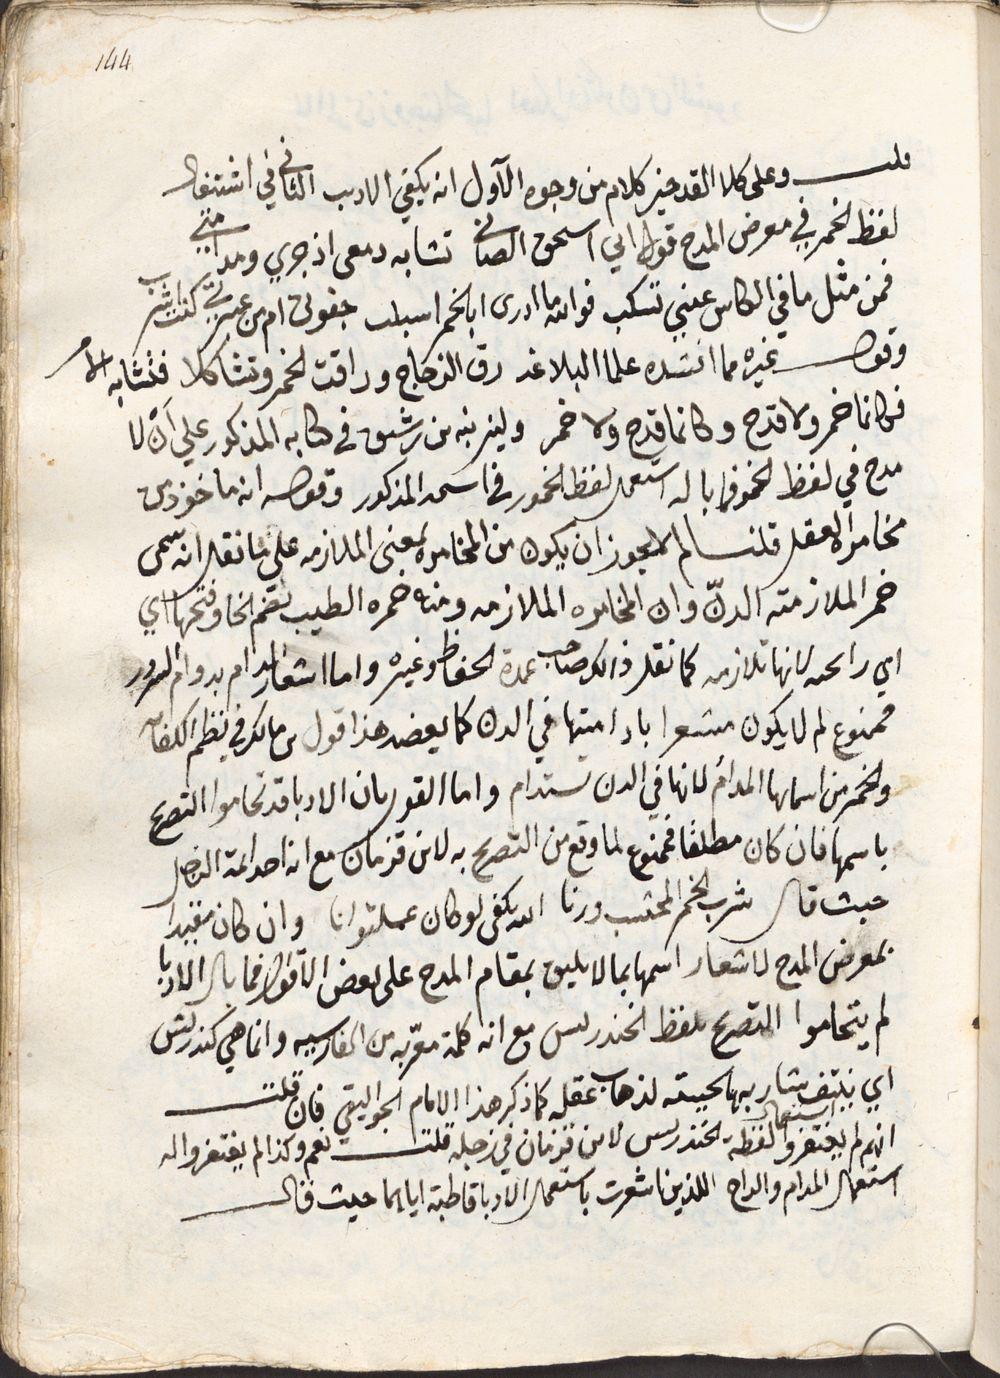 144
قلت وعلى كلا القدحين كلام من وجوه الاول انه يكفي الاديب الثاني في اشتغال
لفظ الخمر في معرض المدح قول ابي اسحق الصابي تشابه دمعي اذ جرى ومدامتي
فمن مثل ما في الكاس عيني تسكب فوالله ما ادرى ابالخمر اسبلت جفوني ام من عبرتي كنت اشرب
وقول غيره مما انشده علما البلاغه رق الزجاج وراقت الخمر وتشاكلا فتشابه الأمر
فكانما خمر ولا قدح وكانما قدح ولا خمر بن رشيق في كتابه المذكور علي أن لا
مدح في لفظ الخمر فما باله استعمل لفظ الخمور في اسمه المذكور وقوله انه ماخوذ من
مخامرة العقل قلنا لم لا يجوز ان يكون من المخامره بمعنى الملازمه علي ما نقل انه سمي
خمر الملازمته الدنّ وان المخامره الملازمه ومنه خمره الطيب بضم الخا وفتحها اي
اي رائحه لانها تلازمه كما نقل ذالك صاحب عمدة الحفاظ وغيره واما اشعار المدام بدوام السرور
فممنوع لم لا يكون مشعرا بادامتها في الدن كما يعضد هذا قول بن مالك في نظم الكفايه
والخمر من اسمايها المدام لانها في الدن تستدام واما القول بان الادبا قد تحاموا التصريح
باسمها فان كان مطلقا فممنوع لما وقع من التصريح به لابن قزمان مع انه احد ائمة الزجل
حيث قال شرب الخمر المحتسب وزنا الله يكفى لو كان عملتو انا وان كان مقيدا
بمعرض المدح لاشعار اسمها بما لا يليق بمقام المدح على بعض الاقوال فما بال الادبا
لم يتحاموا التصريح بلفظ الخندريس مع انه كلمة معرّبه من الفارسيه وانما هي كندريش
اي ينتف شاربها لحيته لذهاب عقله كما ذكر هذا الامام الجواليقي فان قلت
انهم لم يغتفروا استعمال لفظة الخندريس لابن قزمان في زجله قلت نعم وكذا لم يغتفروا له
استعمال المدام والراح اللذين اشعرت باستعمال الادبا قاطبة اياهما حيث قال